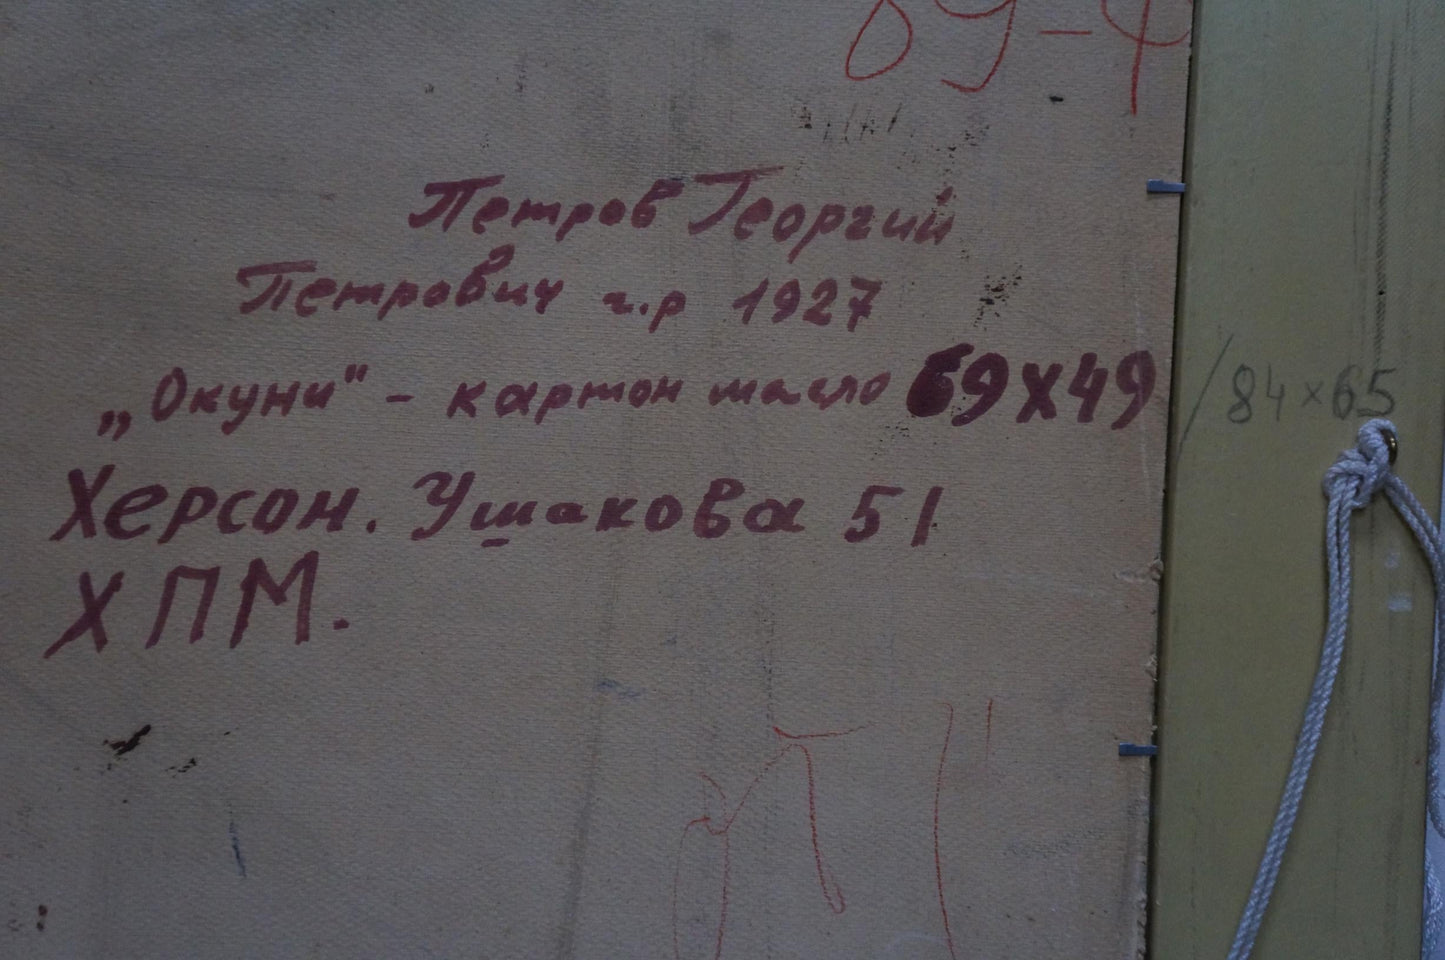 Петров Георгий
Петрович г.р 1927
„Окуни" - картон масло 69х49 / 84×65
Херсон. Ушакова 51
ХПМ.